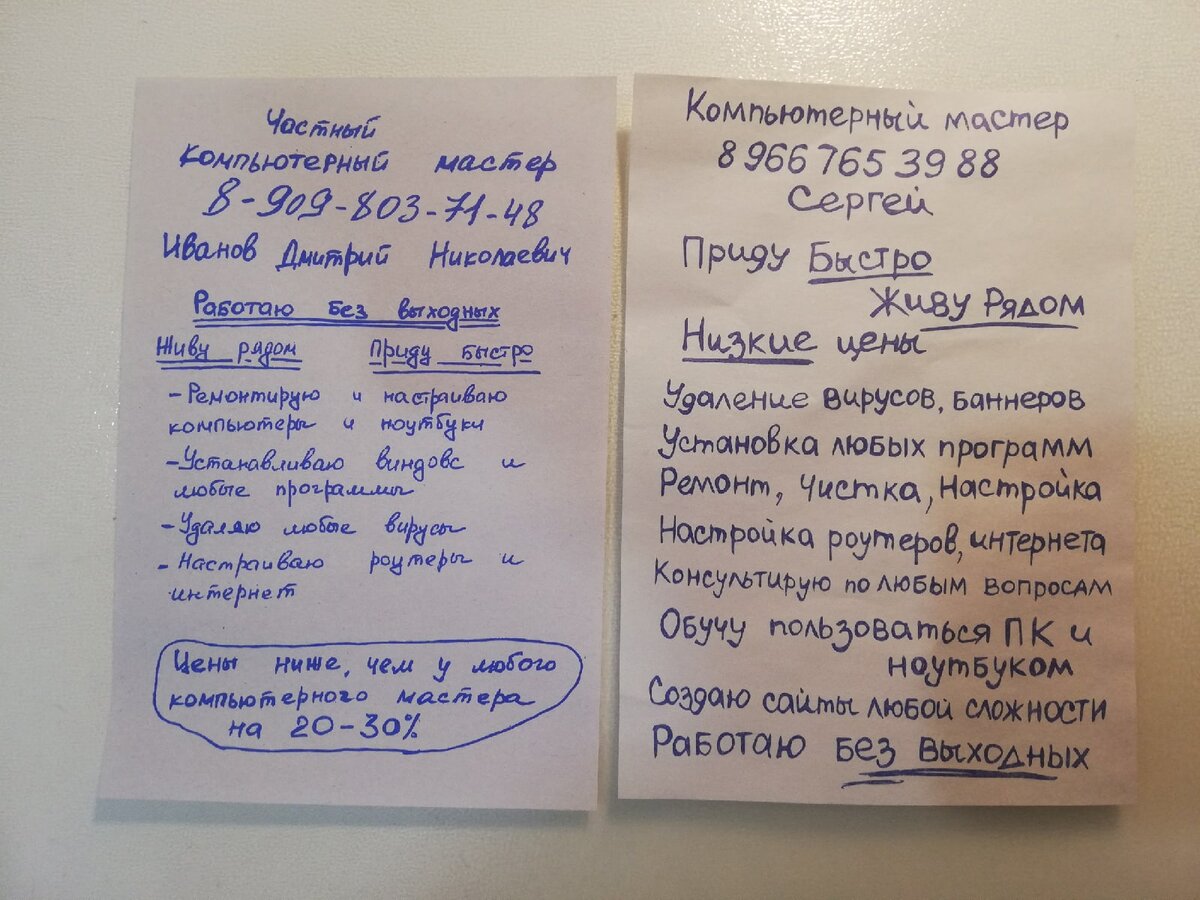 Частный
компьютерный мастер
8-909-803-71-48
Иванов Дмитрий Николаевич
Работаю без выходных
Живу рядом Приду быстро
-Ремонтирую и настраиваю
компьютеры и ноутбуки
-Устанавливаю виндовс и
любые программы
-Удаляю любые вирусы
-Настраиваю роутеры и
интернет
Цены ниже, чем у любого
компьютерного мастера
на 20-30%
Компьютерный мастер
8 966 765 39 88
Сергей
Приду Быстро
Живу Рядом
Низкие цены
Удаление вирусов, баннеров
Установка любых программ
Ремонт, Чистка, Настройка
Настройка роутеров, интернета
Консультирую по любым вопросам
Обучу пользоваться ПК и
ноутбуком
Создаю сайты любой сложности
Работаю без выходных